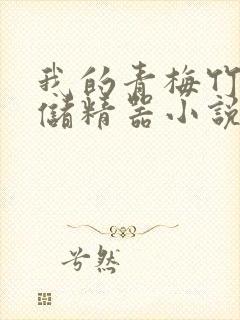 我的青梅竹
儲精器小説
兮然